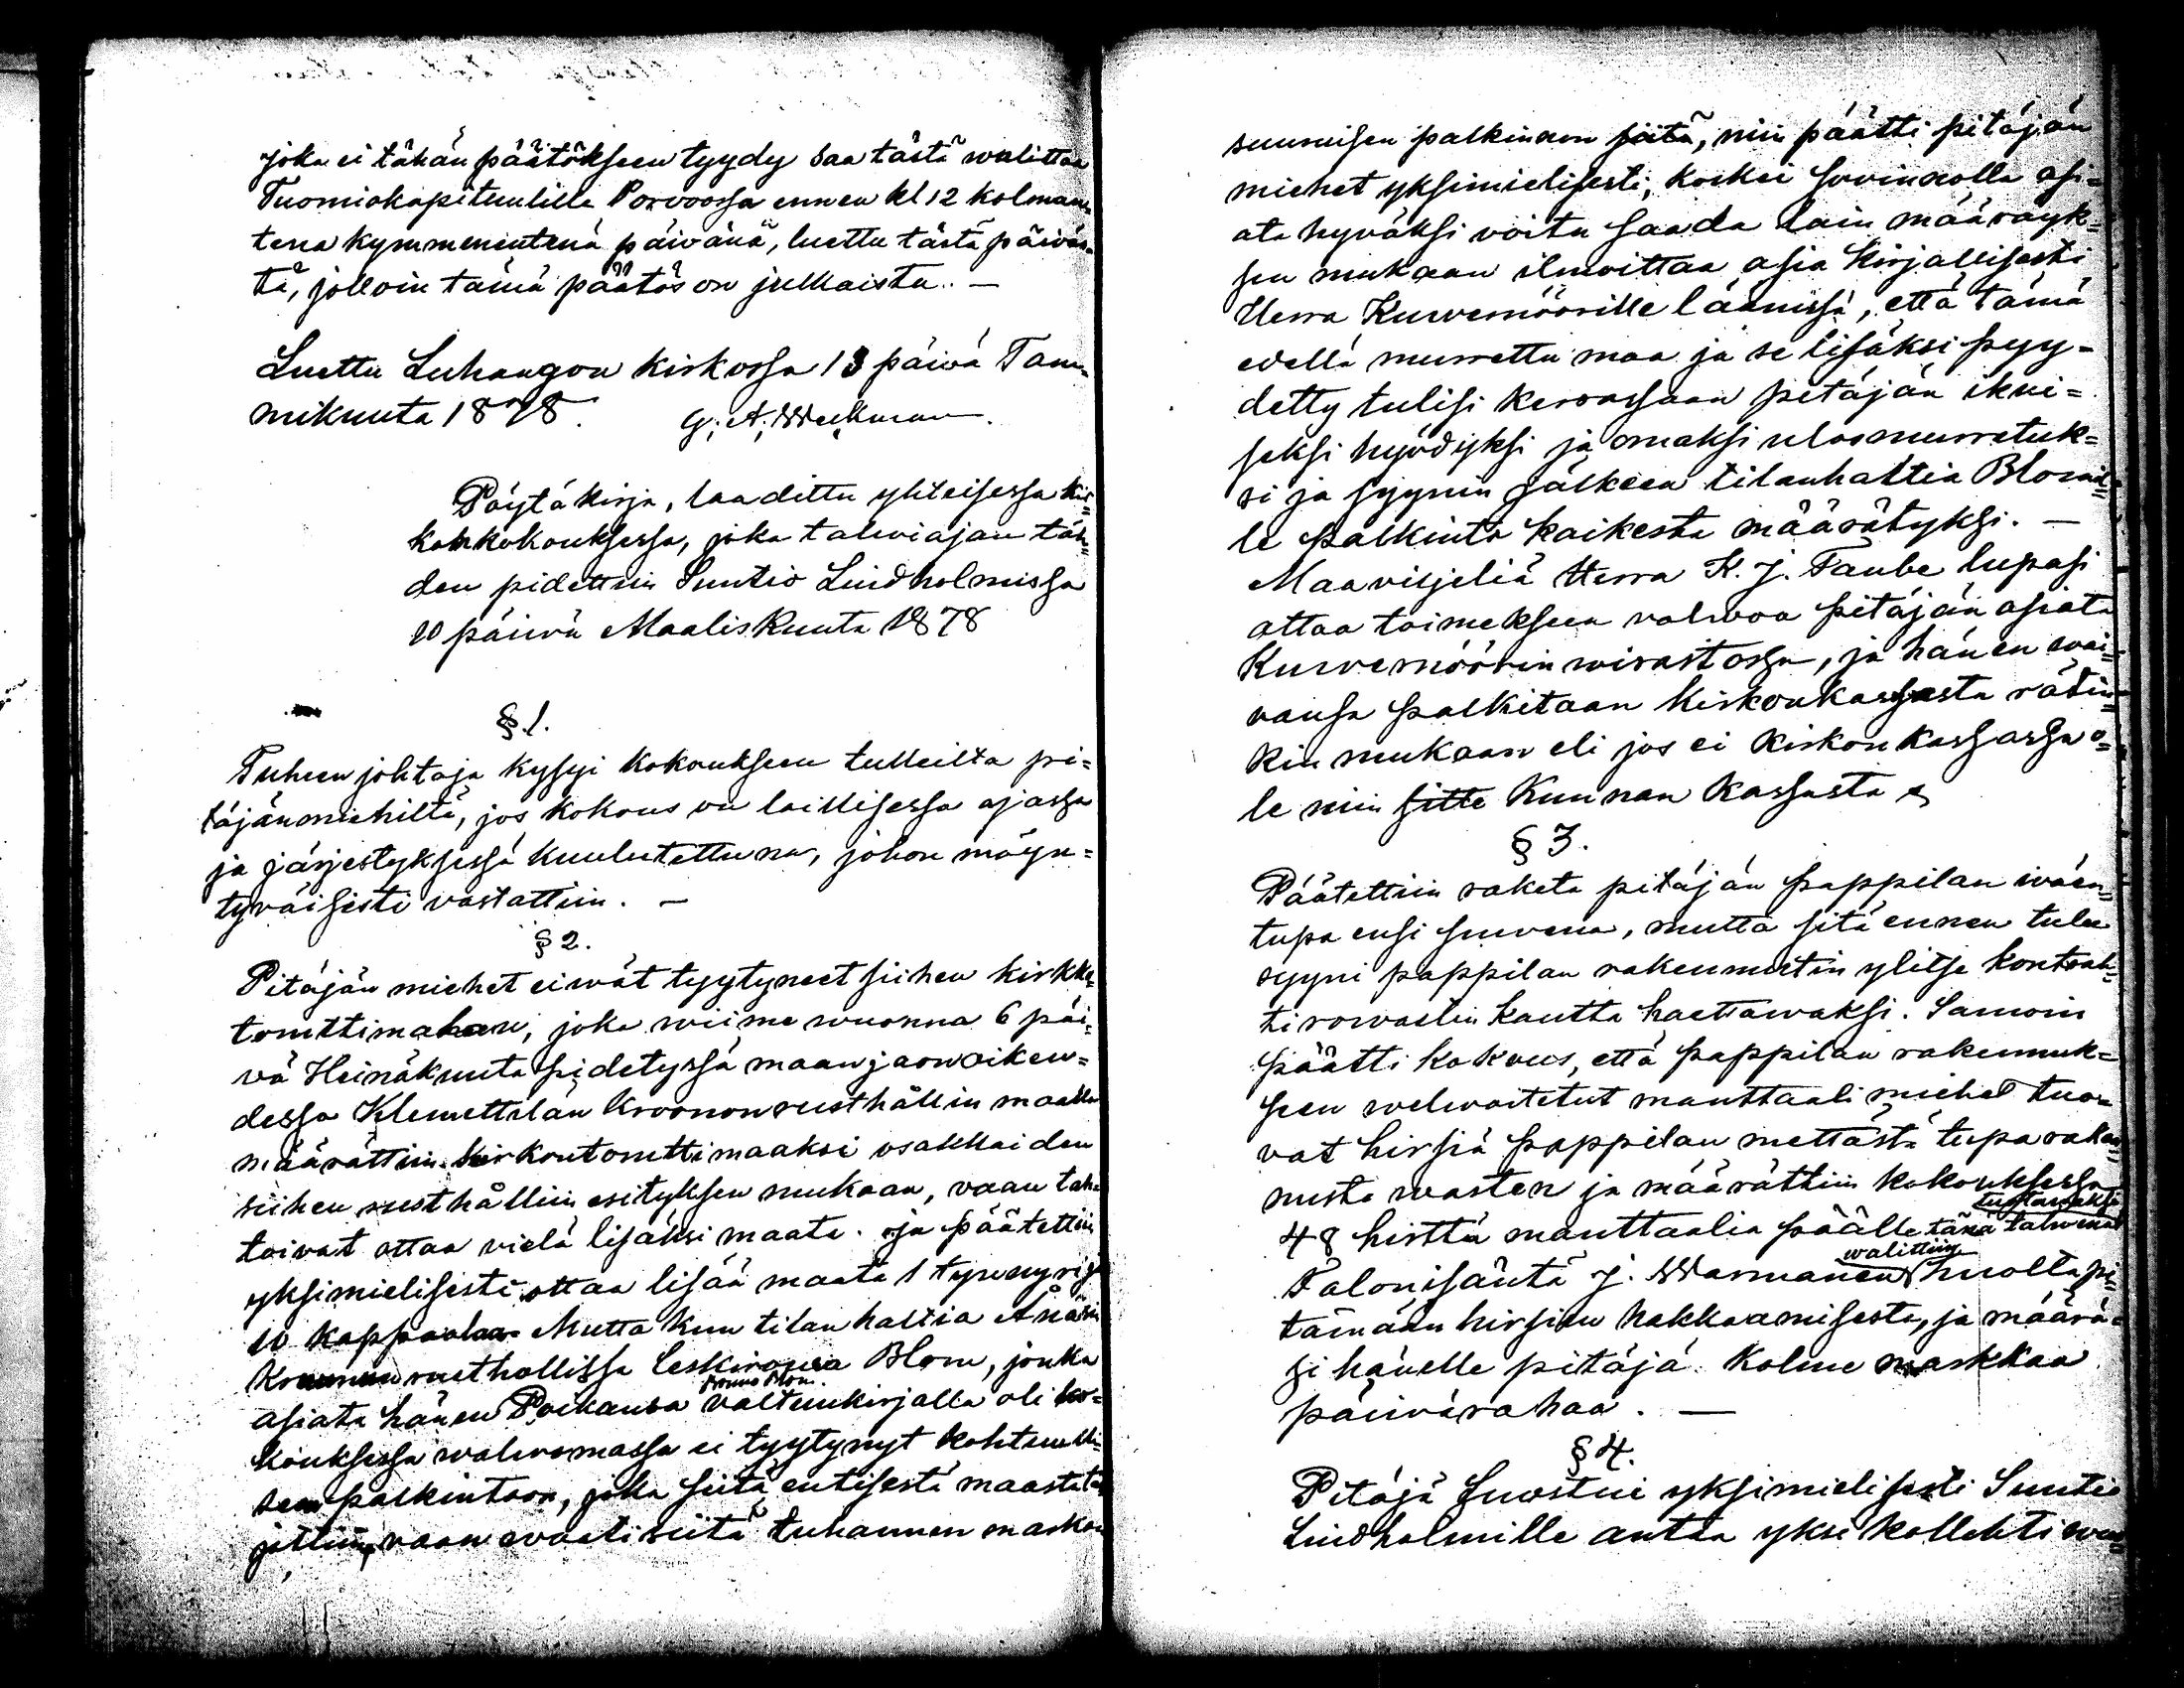 joka ei tähän päätökseen tyydy saa tästä walittaa
Tuomiokapitulille Porvoossa ennen kl 12 kolman-
tena kymmenentenä päivänä, luettu tästä päiväs-
tä, jolloin tämä päätös on julkaistu. —
Luettu Luhangon kirkossa 13 päivä Tam-
mikuuta 1878. G. A. Weckman.
Pöytäkirja, laadittu yhteisessä kir-
konkokouksessa, joka talwiajan täh-
den pidettiin Suntio Lindholmissa
10 päivä Maaliskuuta 1878
§. 1.
Puheenjohtaja kysyi kokoukseen tulleilta pi-
täjänmiehiltä, jos kokous on laillisessa ajassa
ja järjestyksessä kuulutettuna, johon myön=
tyväisesti vastattiin. —
§ 2.
Pitäjän miehet eiwät tyytyneet siihen kirkko-
tomttimahan, joka wiime wuonna 6 päi-
vä Heinäkuuta pidetyssä maanjaon oiken=
dessa Klemettilän kroonon rusthållin maalla
määrättiin kirkontomttimaaksi osakkaiden
siihen rusthållin esityksen mukaan, vaan tah-
toivat ottaa vielä lisäksi maata. ja päätettiin
yksimielisesti ottaa lisää maata 1 tynnyri ja
10 kappaalaa. Mutta kun tilan haltia
rusthollissa leskirouwa Blom, jonka
Bruno Blom.
asiata hänen Poikansa valtuukirjalla oli ko=
kouksessa walwomassa ei tyytynyt kohtuulli-
seen palkintoon, joka siitä entisestä maasta tar-
jottiin, vaan waati siitä tuhannen markan
suuruisen palkinnon siitä, niin päätti pitäjän
miehet yksimielisesti, koskei sowinnolla asi-
ata hyväksi voitu saada lain määräyk=
sen mukaan ilmoittaa asia kirjallisesti
Herra Kuwernöörille läänissä, että tämä
edellä murrettu maa ja se lisäksi pyy=
detty tulisi kerrassaan pitäjän ikui=
seksi hyödyksi ja omaksi ulosmurretuk=
si ja syynin jälkeen tilanhaltia Blomil-
le palkinto kaikesta määrätyksi. —
Maaviljeliä Herra K. J. Taube lupasi
ottaa toimekseen valwoa pitäjän asiata
Kuwernöörin wirastossa, ja hänen wai-
vansa palkitaan kirkonkassasta rätin=
kin mukaan eli jos ei kirkon kassassa o=
le niin sitte Kunnan kassasta
§ 3.
Päätettiin raketa pitäjän pappilan wäen=
tupa ensi suwena, mutta sitä ennen tulee
syyni pappilan rakennustin ylitse kontrah-
ti rowastin kautta haettawaksi. Samoin
päätti kokous, että pappilan rakennuk=
seen welwoitetut manttaali miehet tuo=
vat hirsiä pappilan mettästä tupa raken=
nusta wasten ja määrättiin kokouksessa
tuotawaksi
48 hirttä manttaalia päälle tänä talwena
walittiin
Talonisäntä J. Warmanen huolta pi=
tämään hirsien hakkaamisesta, ja määrä=
si hänelle pitäjä kolme markkaa
päiwärahaa. —
§ 4.
Pitäjä suostui yksimielisesti Suntio
Lindholmille antaa yksi kollehti wuo-